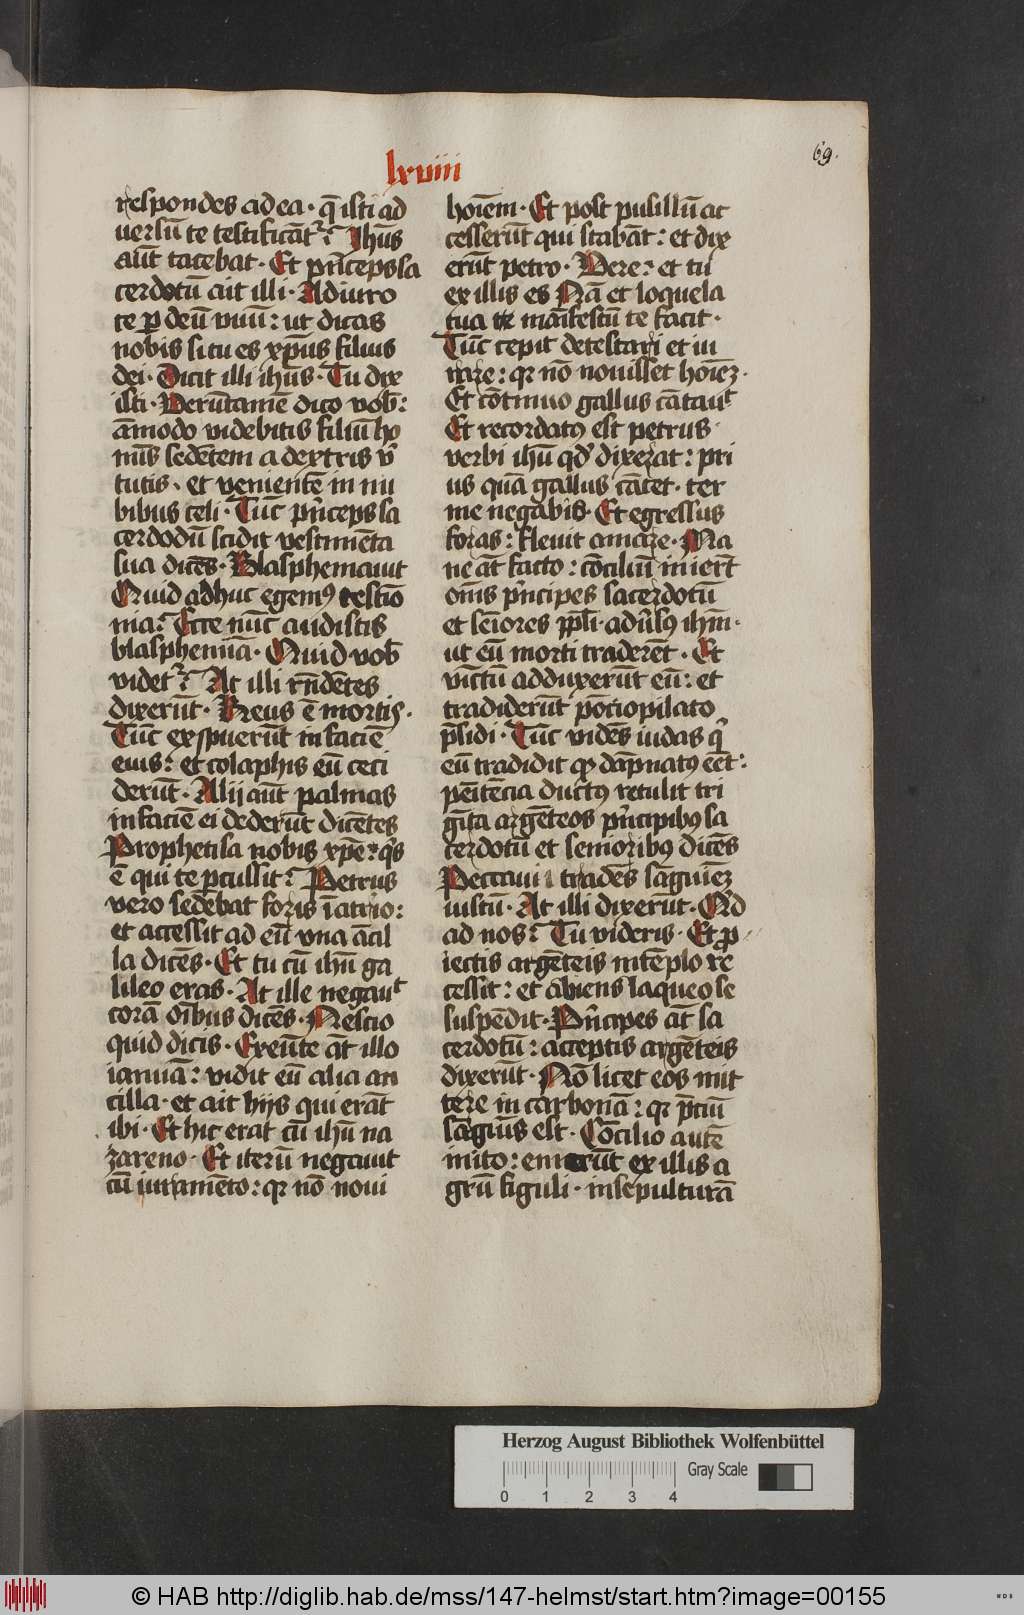 lxviii
69.
respondes ad ea · q̄ isti ad
uersū te testificāt᷑ · Ihūs
aūt tacebat · Et prīceps sa
cerdotū ait illi · Adiuro
te ꝑ deū viuū : ut dicas
nobis si tu es xp̄us filius
dei · Dicit illi ihūs · Tu dix
isti · Verūtamē dico vob̄ :
āmodo videbitis filiū ho
mīs sedētem a dextris v̄
tutis · et venientē in nu
bibus celi · Tūc prīceps sa
cerdodū scidit vestimēta
sua dicēs · Blasphemauit
Quid adhuc egemꝰ testīo
nia · Ecce nūc audistis
blasphemiā · Quid vob̄
videt᷑ · At illi rn̄dētes
dixerūt · Reus ē mortis ·
Tūc exspuerūt in faciē
eius : et colaphis eū ceci
derūt · Alij aūt palmas
in faciē ei dederūt dicētes
Prophetisa nobis xp̄e : qͥs
ē qui te ꝑcussit · Petrus
vero sedebat foris ī atrio :
et accessit ad eū vna ācil
la dicēs · Et tu cū ihū ga
lileo eras · At ille negauᵗ
corā oībus dicēs · Nescio
quid dicis · Exeūte āt illo
ianuā : vidit eū alia an
cilla · et ait hijs qui erāt
ibi · Et hic erat cū ihū na
zareno · Et iterū negauit
cū iuramēto : qꝛ nō noui
hoīem · Et post pusillū ac
cesserūt qui stabāt : et dix
erūt petro · Vere : et tu
ex illis es Nā et loquela
tua manīfestū te facit ·
Tūc cepit detestari et iu
rare : qꝛ nō nouisset hoīeꝫ ·
Et cōtinuo gallus cātauᵗ
Et recordatꝰ est petrus ·
verbi ihū qd̄ dixerat : pri
us quā gallus cātet · ter
me negabis · Et egressus
foras : fleuit amare · Ma
ne āt facto : cōciliū iniert̄
om̄s prīcipes sacerdotū
et sēiores ppl̄i · adūsꝰ ihm̄ ·
ut eū morti traderēt · Et
vīctū adduxerūt eū : et
tradiderūt pōcio pilato
p̄sidi · Tūc vidēs iudas qͥ
eū tradidit qꝫ dāpnatꝰ eēt :
peītēcia ductꝰ retulit tri
gīta argēteos prīcipibꝰ sa
cerdotū et senioribꝰ dicēs
Peccaui tradēs sāguīeꝫ
iustū · At illi dixerūt · Qͥd
ad nos · Tu videris · Et ꝓ
iectis argēteis in tēplo re
cessit : et abiens laqueo se
suspēdit · Prīcipes āt sa
cerdotū : acceptis argēteis
dixerūt · Nō licet eos mit
tere in carbonā : qꝛ p̄ciū
sāgīus est · Cōcilio autē
inito : emerūt ex illis a
grū figuli · in sepulturā
Herzog August Bibliothek Wolfenbüttel
Gray Scale
0 1 2 3 4
© HAB http://diglib.hab.de/mss/147-helmst/start.htm?image=00155